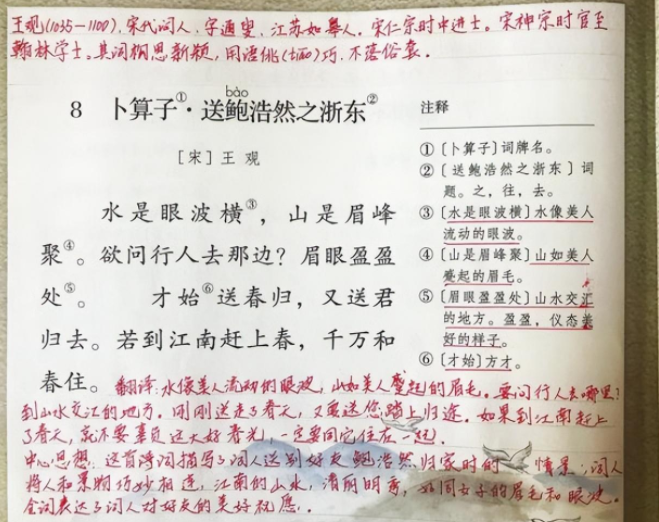 王观(1035-1100),宋代词人,字通叟,江苏如皋人。宋仁宗时中进士。宋神宗时官至
翰林学士。其词构思新颖,用语佻(tiāo)巧,不落俗套。
bào
8 卜算子①·送鲍浩然之浙东②
[宋]王 观
水是眼波横③,山是眉峰
聚④。欲问行人去那边?眉眼盈盈
处⑤。 才始⑥送春归,又送君
归去。若到江南赶上春,千万和
春住。
注释
①〔卜算子〕词牌名。
②〔送鲍浩然之浙东〕词
题。之,往,去。
③〔水是眼波横〕水像美人
流动的眼波。
④〔山是眉峰聚〕山如美人
蹙起的眉毛。
⑤〔眉眼盈盈处〕山水交汇
的地方。盈盈,仪态美
好的样子。
⑥〔才始〕方才。
翻译:水像美人流动的眼波,山如美人蹙起的眉毛。要问行人去哪里?
到山水交汇的地方。刚刚送走了春天,又要送您踏上归途。如果到江南赶上
了春天,就不要辜负这大好春光,一定要同它住在一起。
中心思想:这首诗词描写了词人送别好友鲍浩然归家时的 情景,词人
将人和景物巧妙相连,江南的山水,清丽明秀,如同女子的眉毛和眼波。
全词表达了词人对好友的美好祝愿。